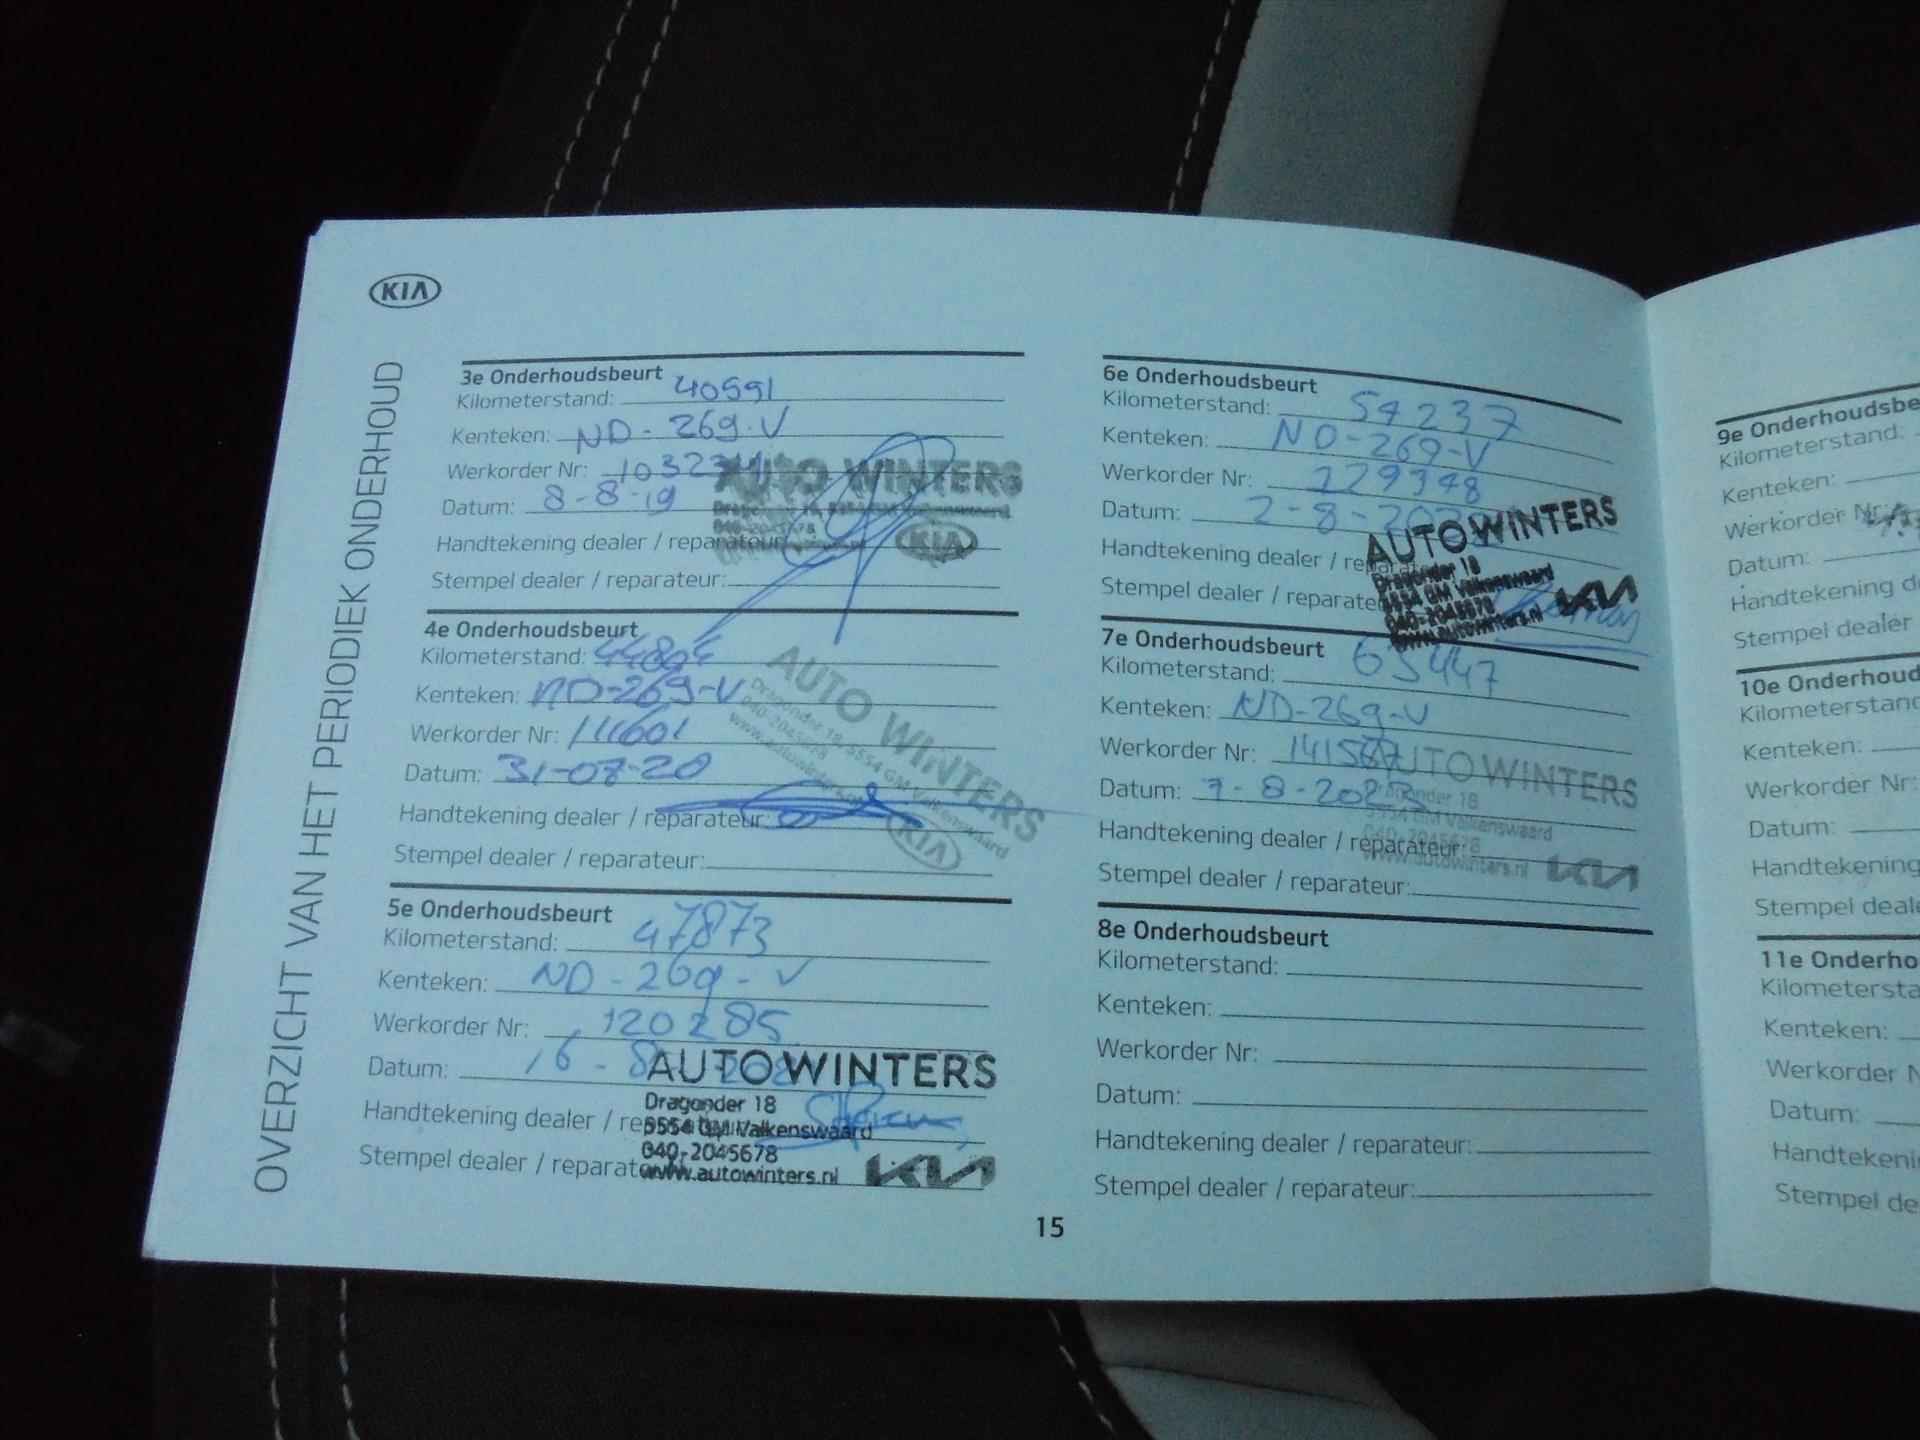 KIA
OVERZICHT VAN HET PERIODIEK ONDERHOUD
3e Onderhoudsbeurt
Kilometerstand: 40591
Kenteken: ND-269-V
Werkorder Nr:
Datum: 8-8-19
Handtekening dealer / reparateur:
Stempel dealer / reparateur:
AUTO WINTERS
KIA
4e Onderhoudsbeurt
Kilometerstand:
Kenteken: ND-269-V
Werkorder Nr: 111601
Datum: 31-07-20
Handtekening dealer / reparateur:
Stempel dealer / reparateur:
AUTO WINTERS
Dragonder 18-5554 GM Valkenswaard
040-2045678
www.autowinters.nl
KIA
5e Onderhoudsbeurt
Kilometerstand: 47873
Kenteken: ND-269-V
Werkorder Nr: 120285
Datum: 16-8
Handtekening dealer /
Stempel dealer /
AUTOWINTERS
Dragonder 18
5554 GM Valkenswaard
040-2045678
www.autowinters.nl
KIA
6e Onderhoudsbeurt
Kilometerstand: 54237
Kenteken: ND-269-V
Werkorder Nr:
Datum: 2-8-
Handtekening dealer /
Stempel dealer /
AUTOWINTERS
Dragonder 18
5554 GM Valkenswaard
040-2045678
www.autowinters.nl
KIA
7e Onderhoudsbeurt
Kilometerstand: 65447
Kenteken: ND-269-V
Werkorder Nr:
Datum: 7-8-2023
Handtekening dealer / reparateur:
Stempel dealer / reparateur:
AUTOWINTERS
Dragonder 18
5554 GM Valkenswaard
040-2045678
www.autowinters.nl
KIA
8e Onderhoudsbeurt
Kilometerstand:
Kenteken:
Werkorder Nr:
Datum:
Handtekening dealer / reparateur:
Stempel dealer / reparateur:
15
9e Onderhoudsbe
Kilometerstand:
Kenteken:
Werkorder Nr:
Datum:
Handtekening d
Stempel dealer
10e Onderhoud
Kilometerstand
Kenteken:
Werkorder Nr:
Datum:
Handtekening
Stempel deale
11e Onderho
Kilometersta
Kenteken:
Werkorder N
Datum:
Handtekeni
Stempel de